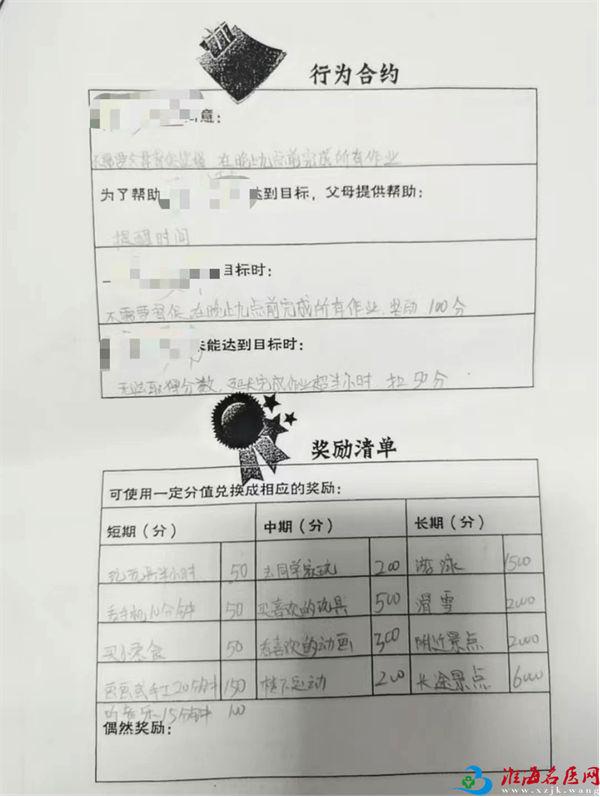 行为合约
意:
在晚上九点前完成所有作业
为了帮助 达到目标，父母提供帮助:
提醒时间
目标时:
不需要督促,在晚上九点前完成所有作业,奖励100分
未能达到目标时:
无法取得分数,延长完成作业超半小时,扣50分
奖励清单
可使用一定分值兑换成相应的奖励:
短期(分) 中期(分) 长期(分)
玩玩具半小时 50 去同学家玩 200 游泳 1500
看手机10分钟 50 买喜欢的玩具 500 滑雪 2000
买小零食 50 看喜欢的动画 300 附近景点 2000
20分钟 150 楼下运动 200 长途景点 6000
听音乐15分钟 100
偶然奖励:
淮海名医网
www.xzjk.wang